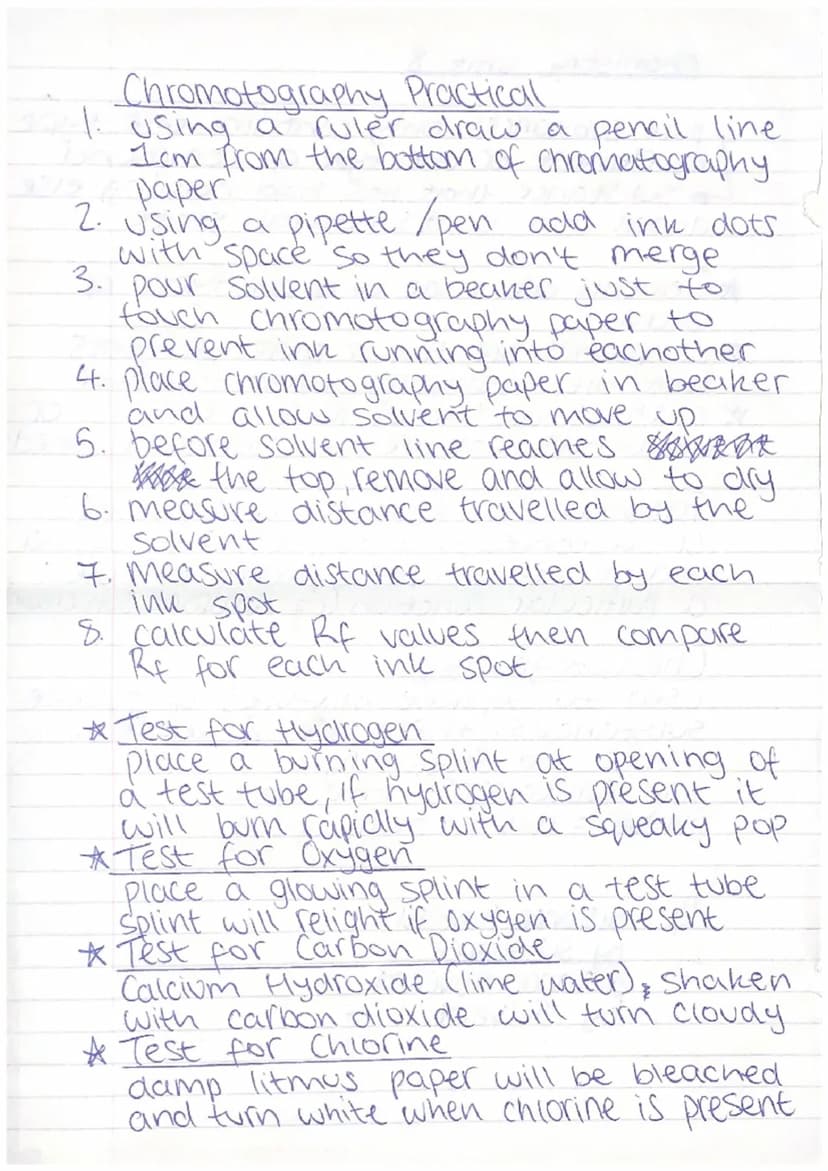 Chromotography Practical
1. using a ruler draw a pencil line
1cm from the bottom of chromatography
paper
2. using a pipette /pen add ink dots
with space so they don't merge
3. pour solvent in a beaker just to
touch chromotography paper to
prevent ink running into eachother
4. place chromotography paper in beaker
and allow solvent to move up
5. before solvent line reaches
the top, remove and allow to dry
6. measure distance travelled by the
solvent
7. measure distance travelled by each
ink spot
8. calculate Rf values then compare
Rf for each ink spot
* Test for Hydrogen
place a burning splint at opening of
a test tube, if hydrogen is present it
will burn rapidly with a squeaky pop
* Test for Oxygen
place a glowing splint in a test tube
splint will relight if oxygen is present
* Test for Carbon Dioxide
Calcium Hydroxide (lime water), shaken
with carbon dioxide will turn cloudy
* Test for Chlorine
damp litmus paper will be bleached
and turn white when chlorine is present